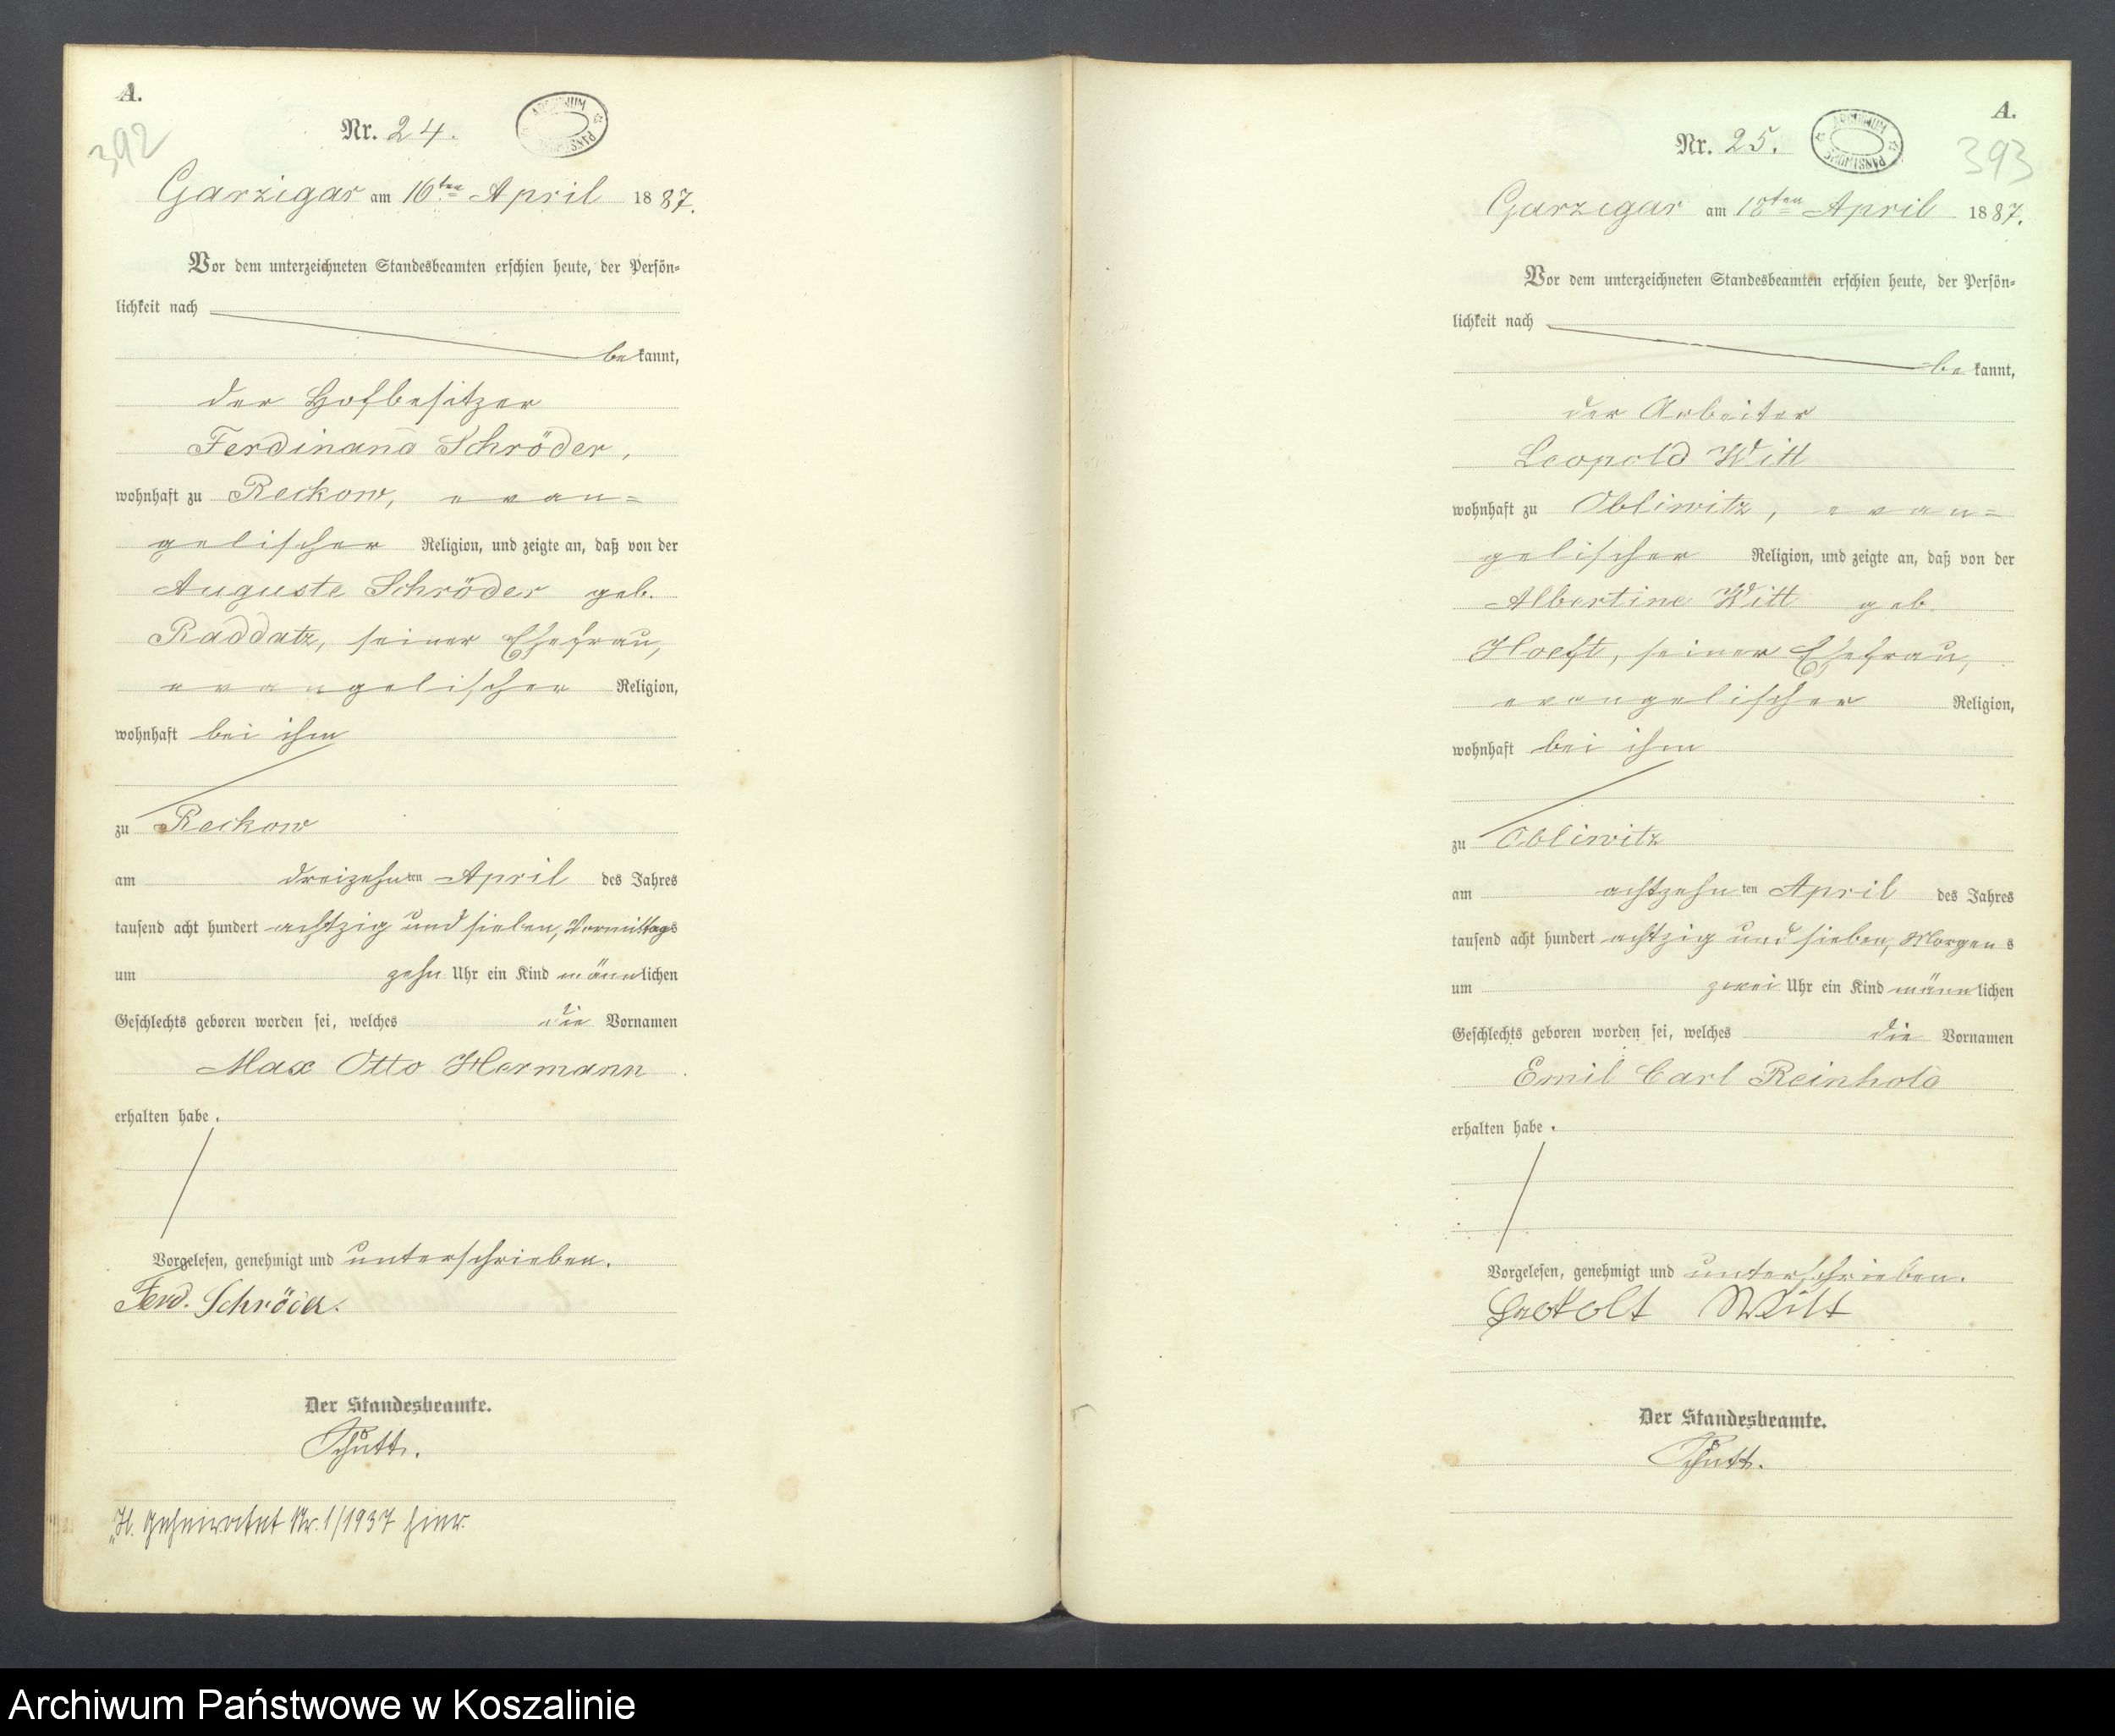 A.
392
Nr. 24.
ARCHIWUM PAŃSTWOWE
Garzigar am 16ten April 1887.
Vor dem unterzeichneten Standesbeamten erschien heute, der Persön-
lichkeit nach
bekannt,
der Hofbesitzer
Ferdinand Schröder,
wohnhaft zu Reckow, evan=
gelischer Religion, und zeigte an, daß von der
Auguste Schröder geb.
Raddatz, seiner Ehefrau,
evangelischer Religion,
wohnhaft bei ihm
zu Reckow
am dreizehnten April des Jahres
tausend acht hundert achtzig und sieben, Vormittags
um zehn Uhr ein Kind männlichen
Geschlechts geboren worden sei, welches die Vornamen
Max Otto Hermann
erhalten habe.
Vorgelesen, genehmigt und unterschrieben.
Ferd. Schröder.
Der Standesbeamte.
Schütt.
geheiratet Nr. 1/1937 hier.
A.
393
Nr. 25.
ARCHIWUM PAŃSTWOWE
Garzigar am 18ten April 1887.
Vor dem unterzeichneten Standesbeamten erschien heute, der Persön-
lichkeit nach
bekannt,
der Arbeiter
Leopold Witt
wohnhaft zu Obliwitz, evan=
gelischer Religion, und zeigte an, daß von der
Albertine Witt geb.
Hoeft, seiner Ehefrau,
evangelischer Religion,
wohnhaft bei ihm
zu Obliwitz
am achtzehnten April des Jahres
tausend acht hundert achtzig und sieben, Morgens
um zwei Uhr ein Kind männlichen
Geschlechts geboren worden sei, welches die Vornamen
Emil Carl Reinhold
erhalten habe.
Vorgelesen, genehmigt und unterschrieben.
Witt
Der Standesbeamte.
Schütt.
Archiwum Państwowe w Koszalinie